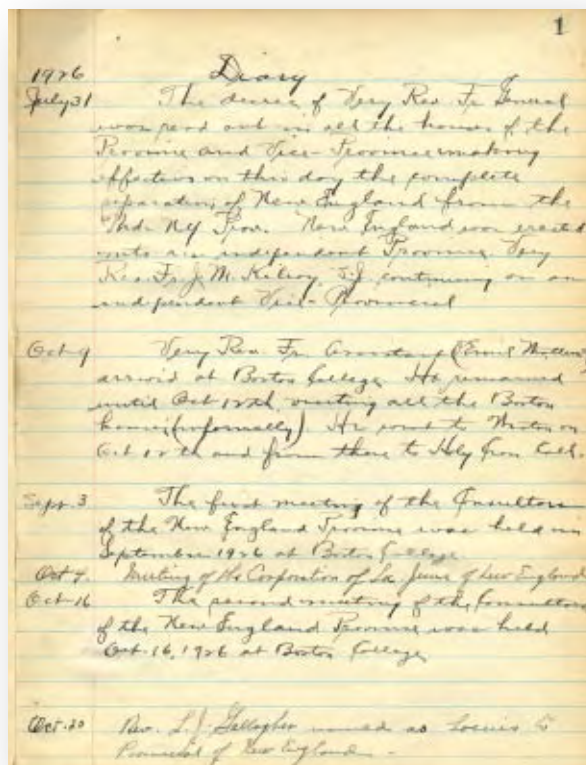 1
Diary
1926
July 31 The decree of Very Rev. Fr General
was read out in all the houses of the
Province and Vice-Province making
effective on this day the complete
separation of New England from the
Md. NY Prov. New England was erected
into an independent Province. Very
Rev. Fr. J. M. Kilroy, S.J. continuing as an
independent Vice-Provincial
Oct 9 Very Rev. Fr. Assistant (Emil Mattern)
arrived at Boston College. He remained
until Oct 12th, visiting all the Boston
houses (informally). He went to Weston on
Oct 12th and from there to Holy Cross Coll.
Sept. 3 The first meeting of the Consultors
of the New England Province was held in
September 1926 at Boston College.
Oct 7. Meeting of the Corporation of Soc. Jesus of New England
Oct-16 The second meeting of the Consultors
of the New England Province was held
Oct. 16, 1926 at Boston College
Oct. 20 Rev. L. J. Gallagher named as Socius to
Provincial of New England -